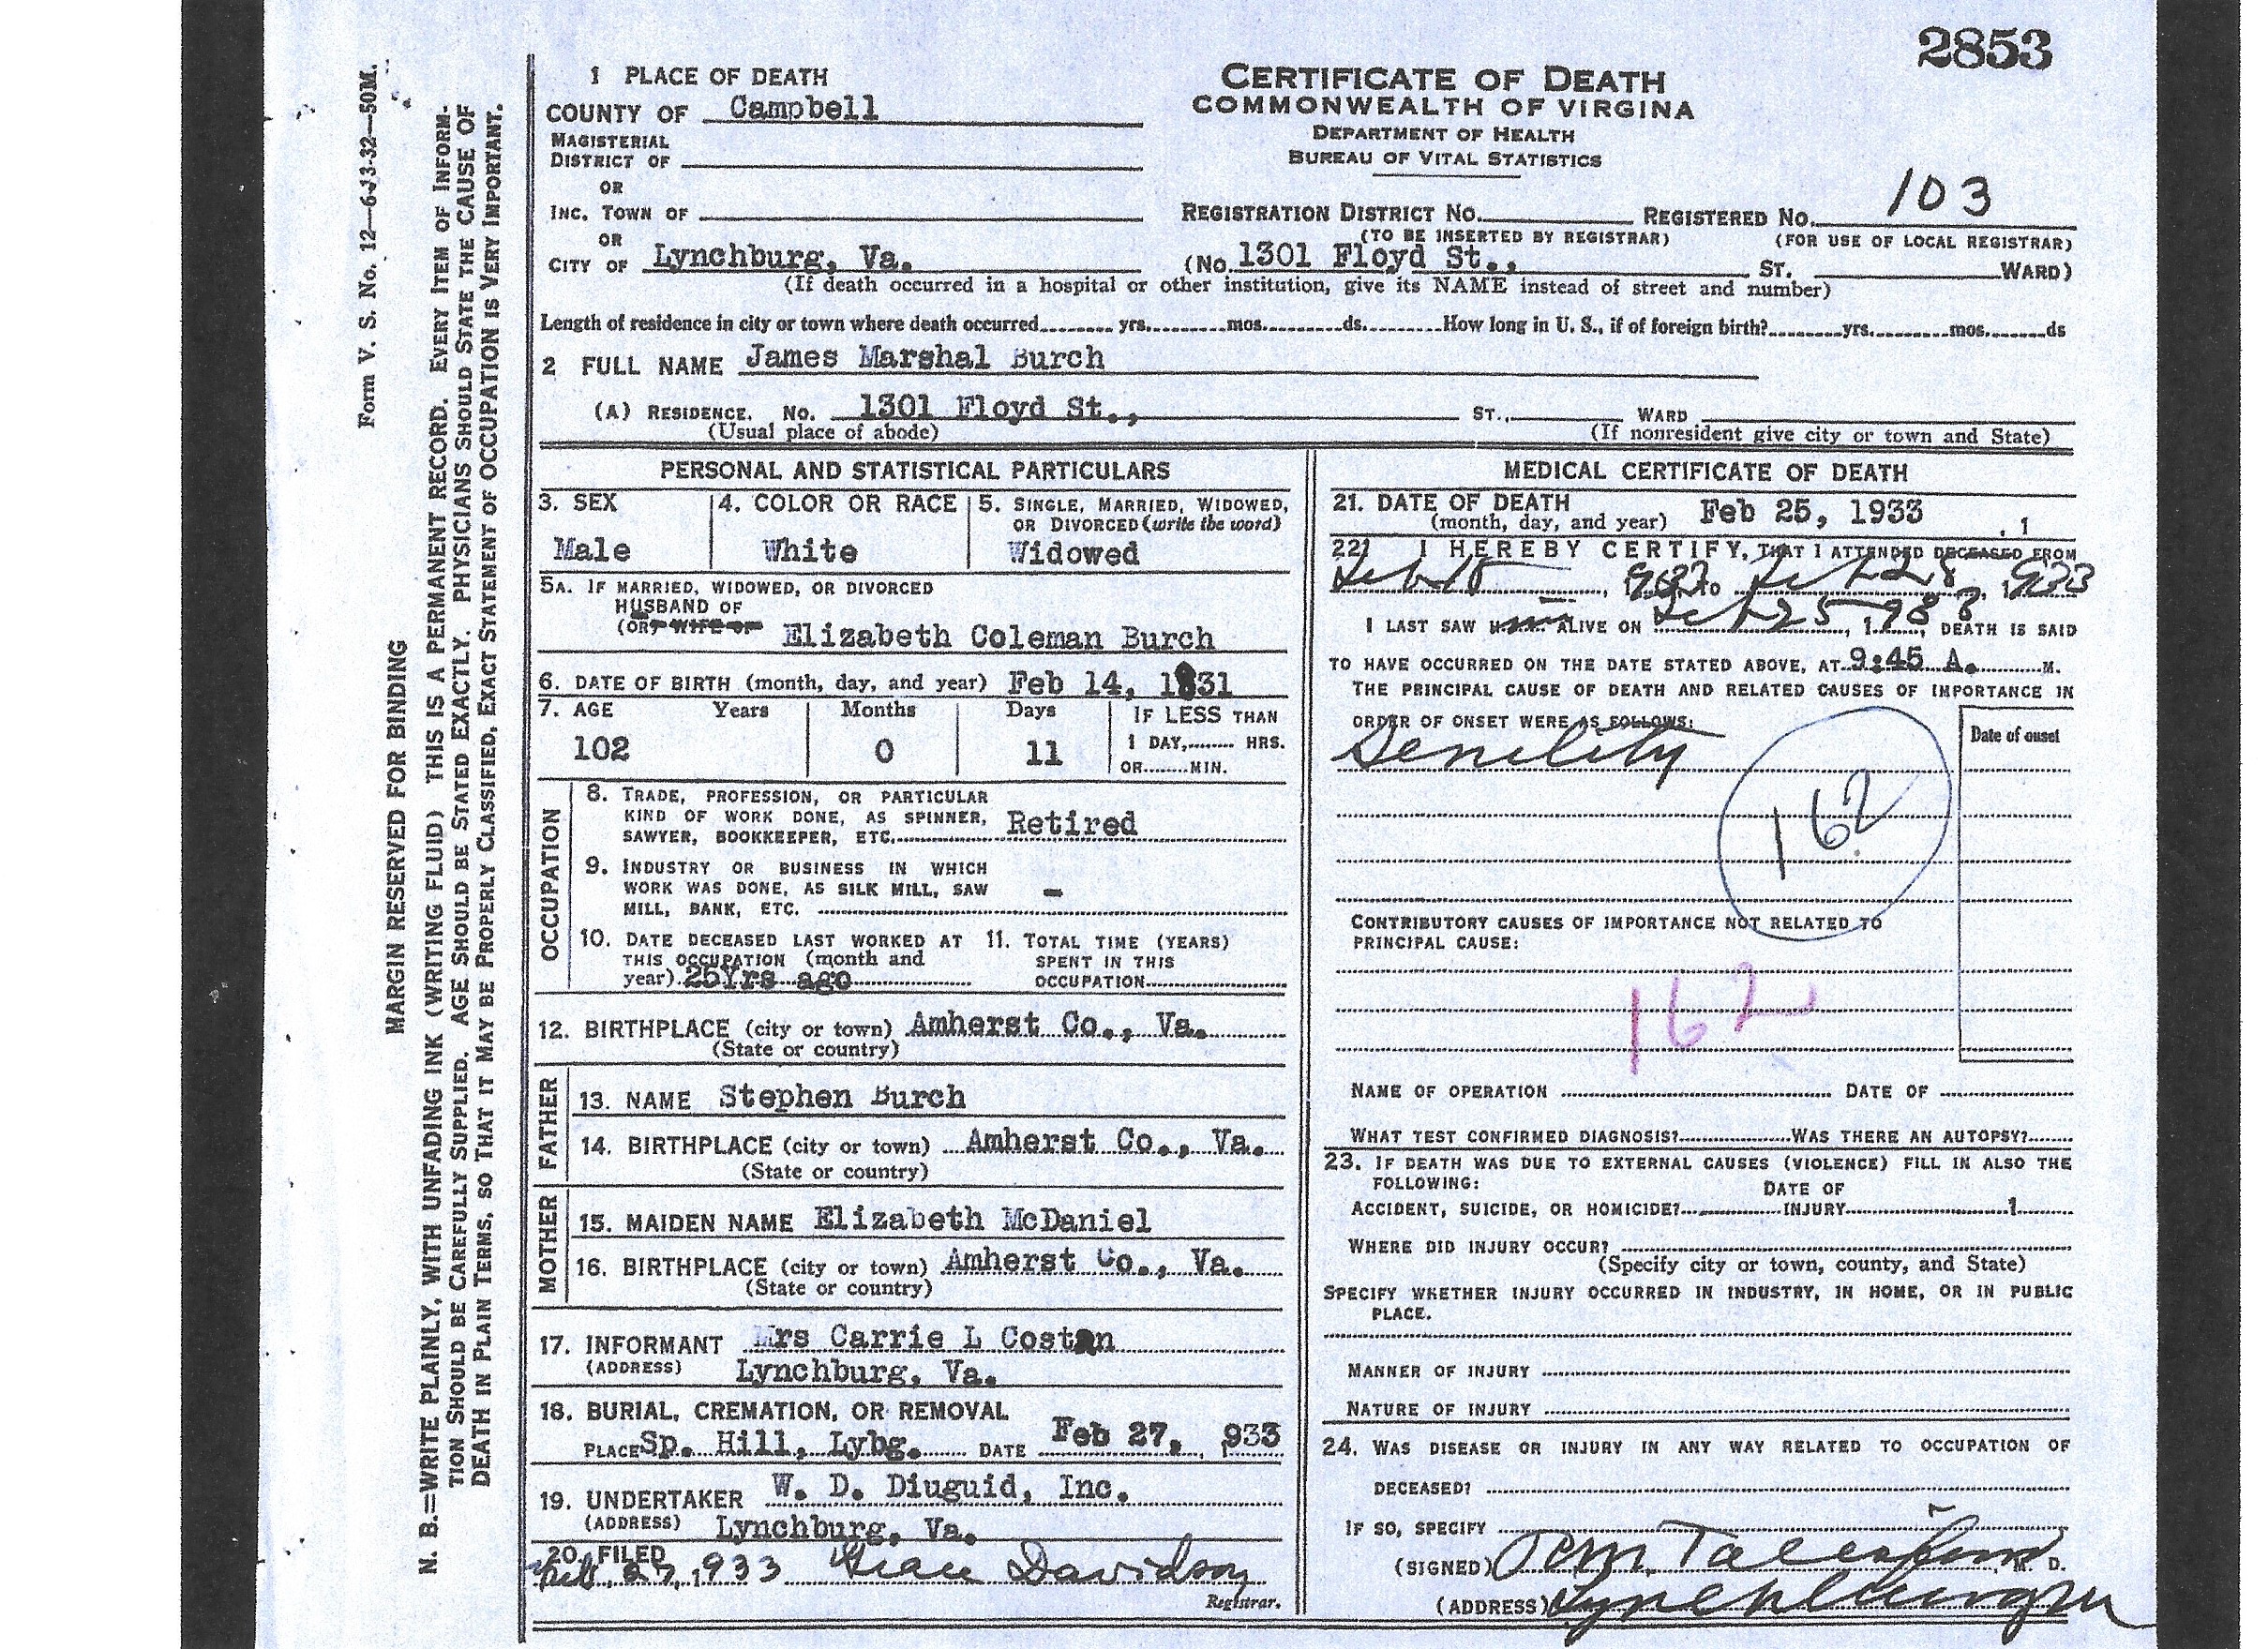 2853
1 PLACE OF DEATH
COUNTY OF Campbell
MAGISTERIAL
DISTRICT OF
OR
INC. TOWN OF
OR
CITY OF Lynchburg, Va.
CERTIFICATE OF DEATH
COMMONWEALTH OF VIRGINA
DEPARTMENT OF HEALTH
BUREAU OF VITAL STATISTICS
REGISTRATION DISTRICT NO. REGISTERED NO. 103
(TO BE INSERTED BY REGISTRAR) (FOR USE OF LOCAL REGISTRAR)
(No. 1301 Floyd St., ST. WARD)
(If death occurred in a hospital or other institution, give its NAME instead of street and number)
Length of residence in city or town where death occurred yrs. mos. ds. How long in U. S., if of foreign birth? yrs. mos. ds
2 FULL NAME James Marshal Burch
(A) RESIDENCE. No. 1301 Floyd St., ST., WARD
(Usual place of abode) (If nonresident give city or town and State)
PERSONAL AND STATISTICAL PARTICULARS
3. SEX
Male
4. COLOR OR RACE
White
5. SINGLE, MARRIED, WIDOWED,
OR DIVORCED (write the word)
Widowed
5A. IF MARRIED, WIDOWED, OR DIVORCED
HUSBAND OF
(OR) WIFE OF Elizabeth Coleman Burch
6. DATE OF BIRTH (month, day, and year) Feb 14, 1831
7. AGE Years Months Days IF LESS THAN
1 DAY, HRS.
OR MIN.
102 0 11
OCCUPATION
8. TRADE, PROFESSION, OR PARTICULAR
KIND OF WORK DONE, AS SPINNER,
SAWYER, BOOKKEEPER, ETC. Retired
9. INDUSTRY OR BUSINESS IN WHICH
WORK WAS DONE, AS SILK MILL, SAW
MILL, BANK, ETC. -
10. DATE DECEASED LAST WORKED AT
THIS OCCUPATION (month and
year) 25Yrs ago
11. TOTAL TIME (YEARS)
SPENT IN THIS
OCCUPATION
12. BIRTHPLACE (city or town) Amherst Co., Va.
(State or country)
FATHER
13. NAME Stephen Burch
14. BIRTHPLACE (city or town) Amherst Co., Va.
(State or country)
MOTHER
15. MAIDEN NAME Elizabeth McDaniel
16. BIRTHPLACE (city or town) Amherst Co., Va.
(State or country)
17. INFORMANT Mrs Carrie L Costan
(ADDRESS) Lynchburg, Va.
18. BURIAL, CREMATION, OR REMOVAL
PLACE Sp. Hill, Lybg. DATE Feb 27, 1933
19. UNDERTAKER W. D. Diuguid, Inc.
(ADDRESS) Lynchburg, Va.
20. FILED
Feb. 27, 1933 Davidson
Registrar.
MEDICAL CERTIFICATE OF DEATH
21. DATE OF DEATH
(month, day, and year) Feb 25, 1933 , 1
22. I HEREBY CERTIFY, THAT I ATTENDED DECEASED FROM
Feb 1933
I LAST SAW H ALIVE ON Feb 25 1933, DEATH IS SAID
TO HAVE OCCURRED ON THE DATE STATED ABOVE, AT 9:45 A. M.
THE PRINCIPAL CAUSE OF DEATH AND RELATED CAUSES OF IMPORTANCE IN
ORDER OF ONSET WERE AS FOLLOWS:
Date of onset
Senility
162
CONTRIBUTORY CAUSES OF IMPORTANCE NOT RELATED TO
PRINCIPAL CAUSE:
162
NAME OF OPERATION DATE OF
WHAT TEST CONFIRMED DIAGNOSIS? WAS THERE AN AUTOPSY?
23. IF DEATH WAS DUE TO EXTERNAL CAUSES (VIOLENCE) FILL IN ALSO THE
FOLLOWING:
DATE OF
ACCIDENT, SUICIDE, OR HOMICIDE? INJURY 1
WHERE DID INJURY OCCUR?
(Specify city or town, county, and State)
SPECIFY WHETHER INJURY OCCURRED IN INDUSTRY, IN HOME, OR IN PUBLIC
PLACE.
MANNER OF INJURY
NATURE OF INJURY
24. WAS DISEASE OR INJURY IN ANY WAY RELATED TO OCCUPATION OF
DECEASED?
IF SO, SPECIFY
(SIGNED) M. D.
(ADDRESS) Lynchburg
Form V. S. No. 12—6-13-32—50M.
MARGIN RESERVED FOR BINDING
N. B.=WRITE PLAINLY, WITH UNFADING INK (WRITING FLUID) THIS IS A PERMANENT RECORD. EVERY ITEM OF INFORM-
TION SHOULD BE CAREFULLY SUPPLIED. AGE SHOULD BE STATED EXACTLY. PHYSICIANS SHOULD STATE THE CAUSE OF
DEATH IN PLAIN TERMS, SO THAT IT MAY BE PROPERLY CLASSIFIED, EXACT STATEMENT OF OCCUPATION IS VERY IMPORTANT.